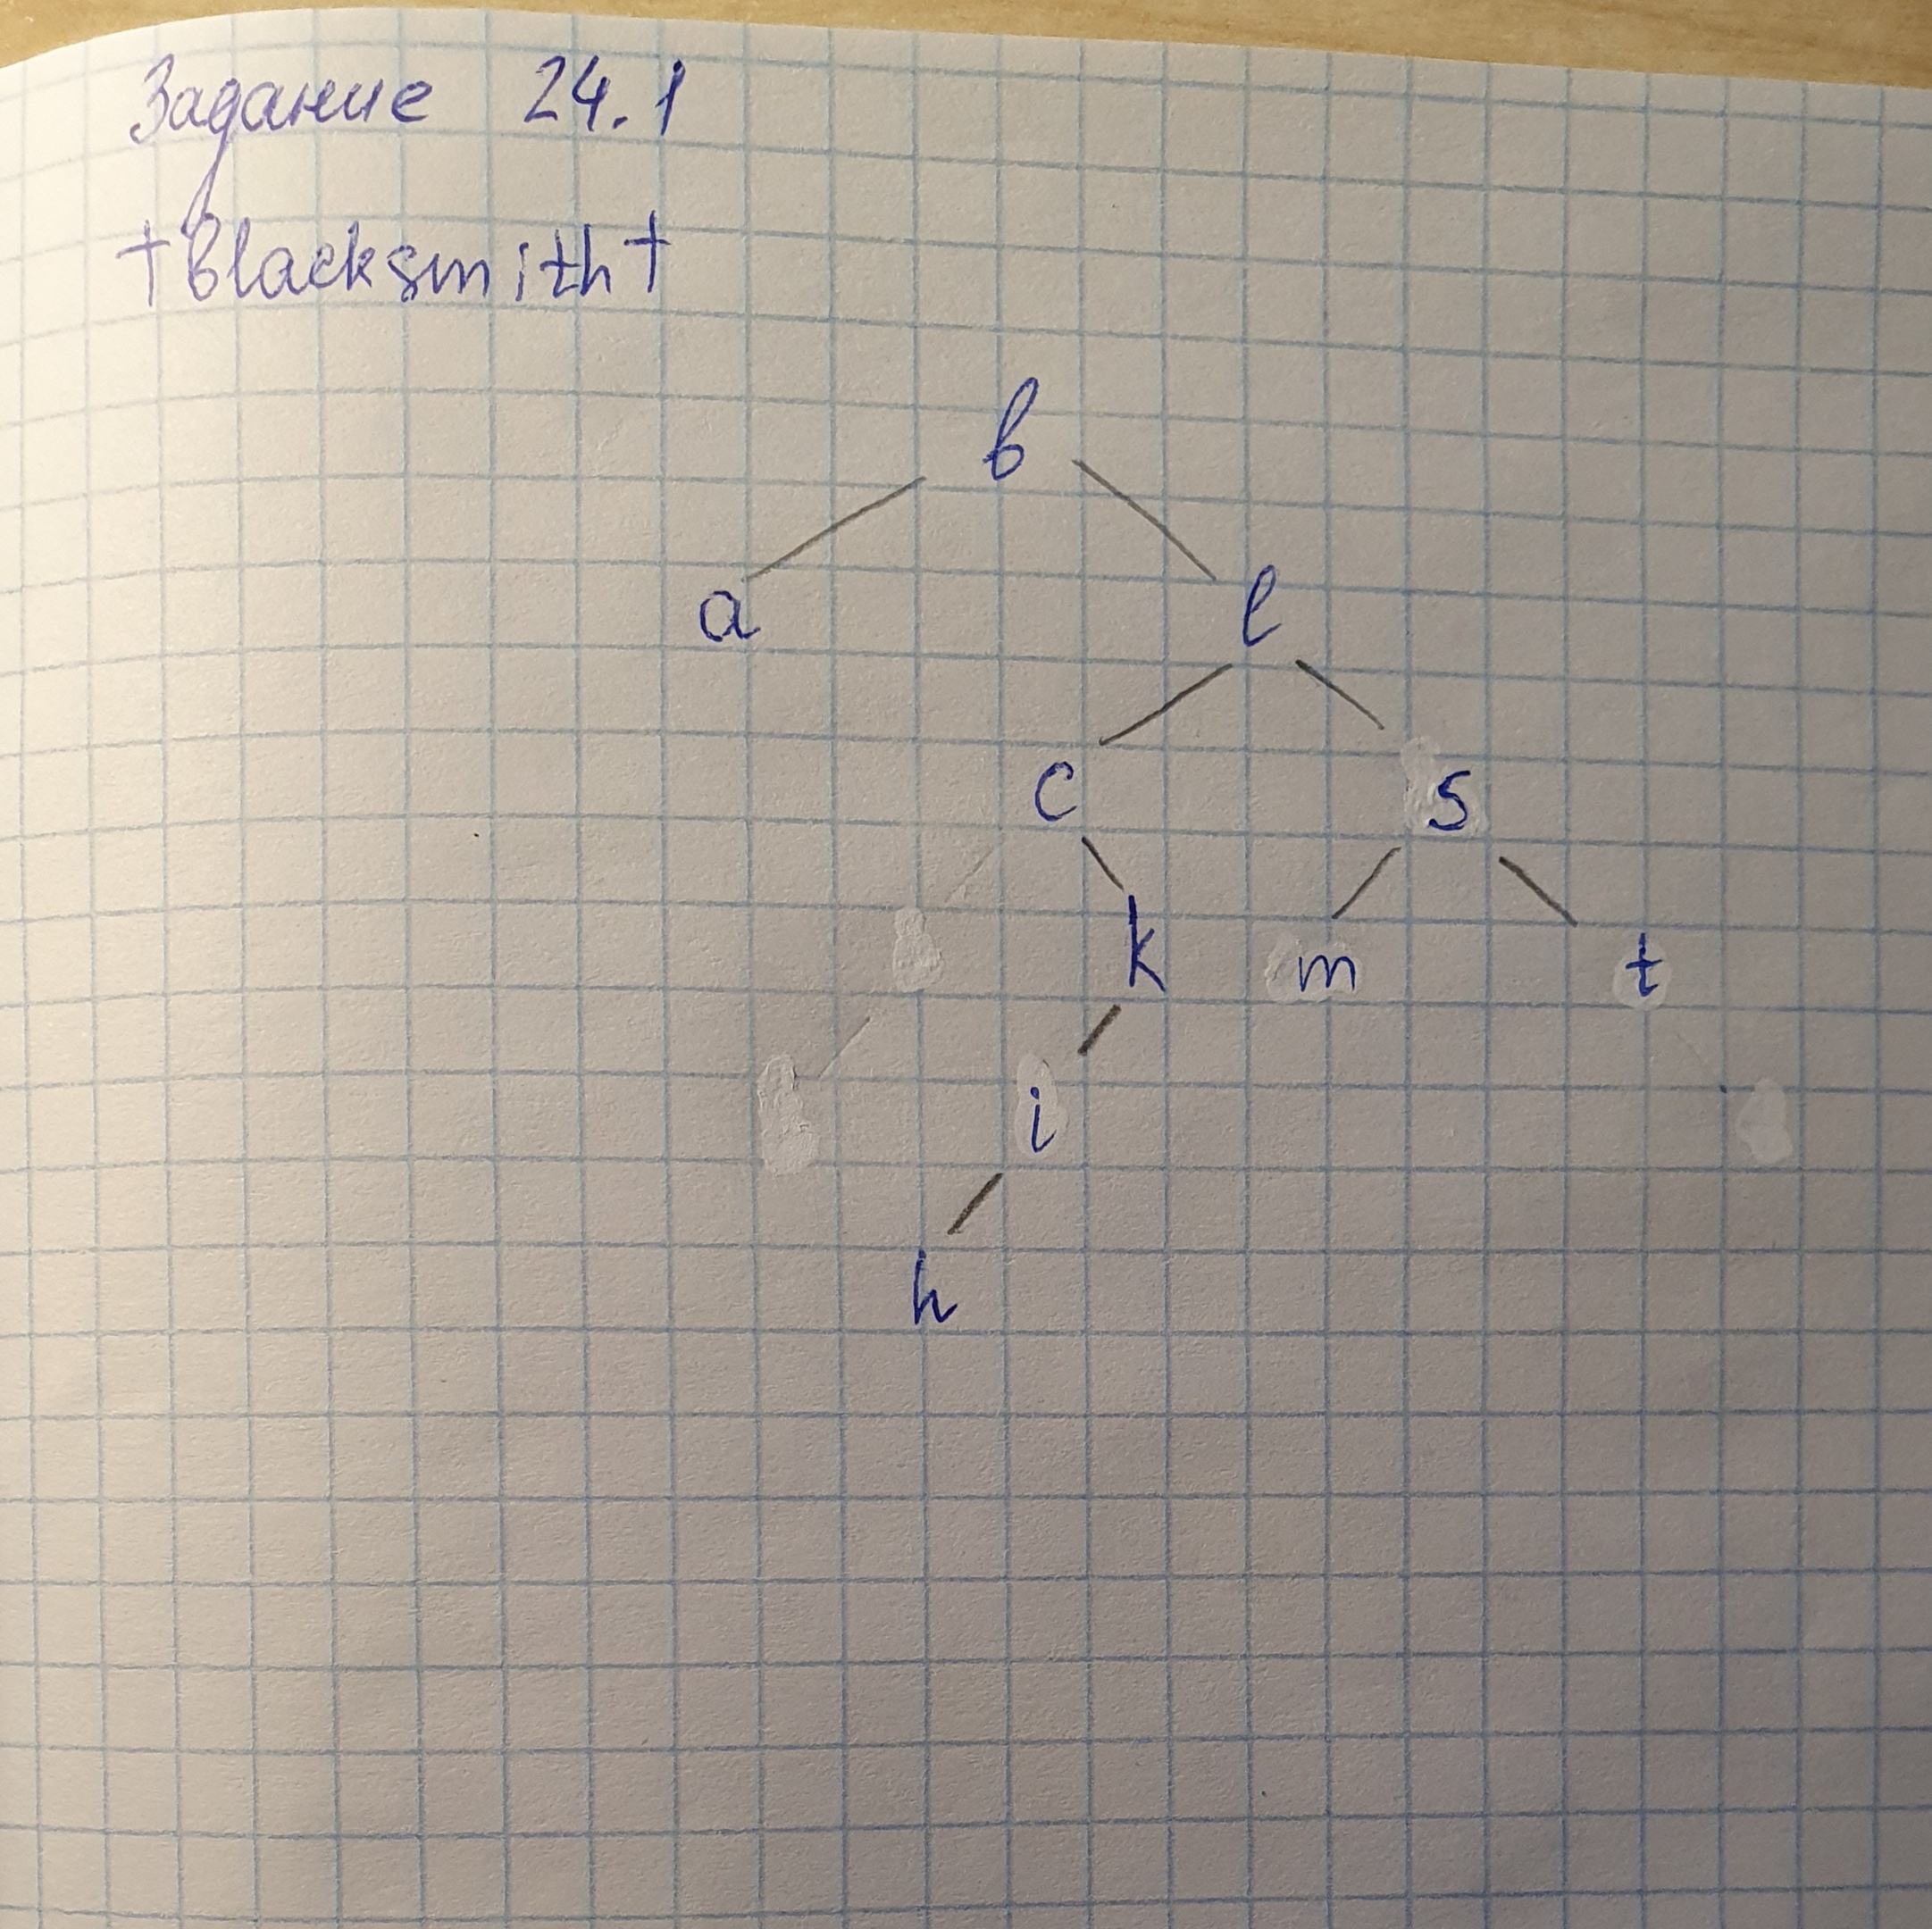 Задание 24.1
†blacksmith†
b
a l
c s
k m t
i
h